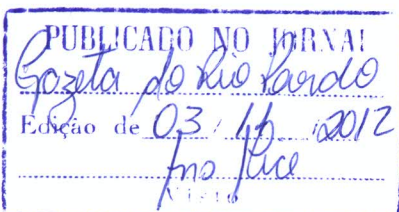 PUBLICADO NO JORNAL
Gazeta do Rio Pardo
Edição de 03 / 11 / 2012
Visto